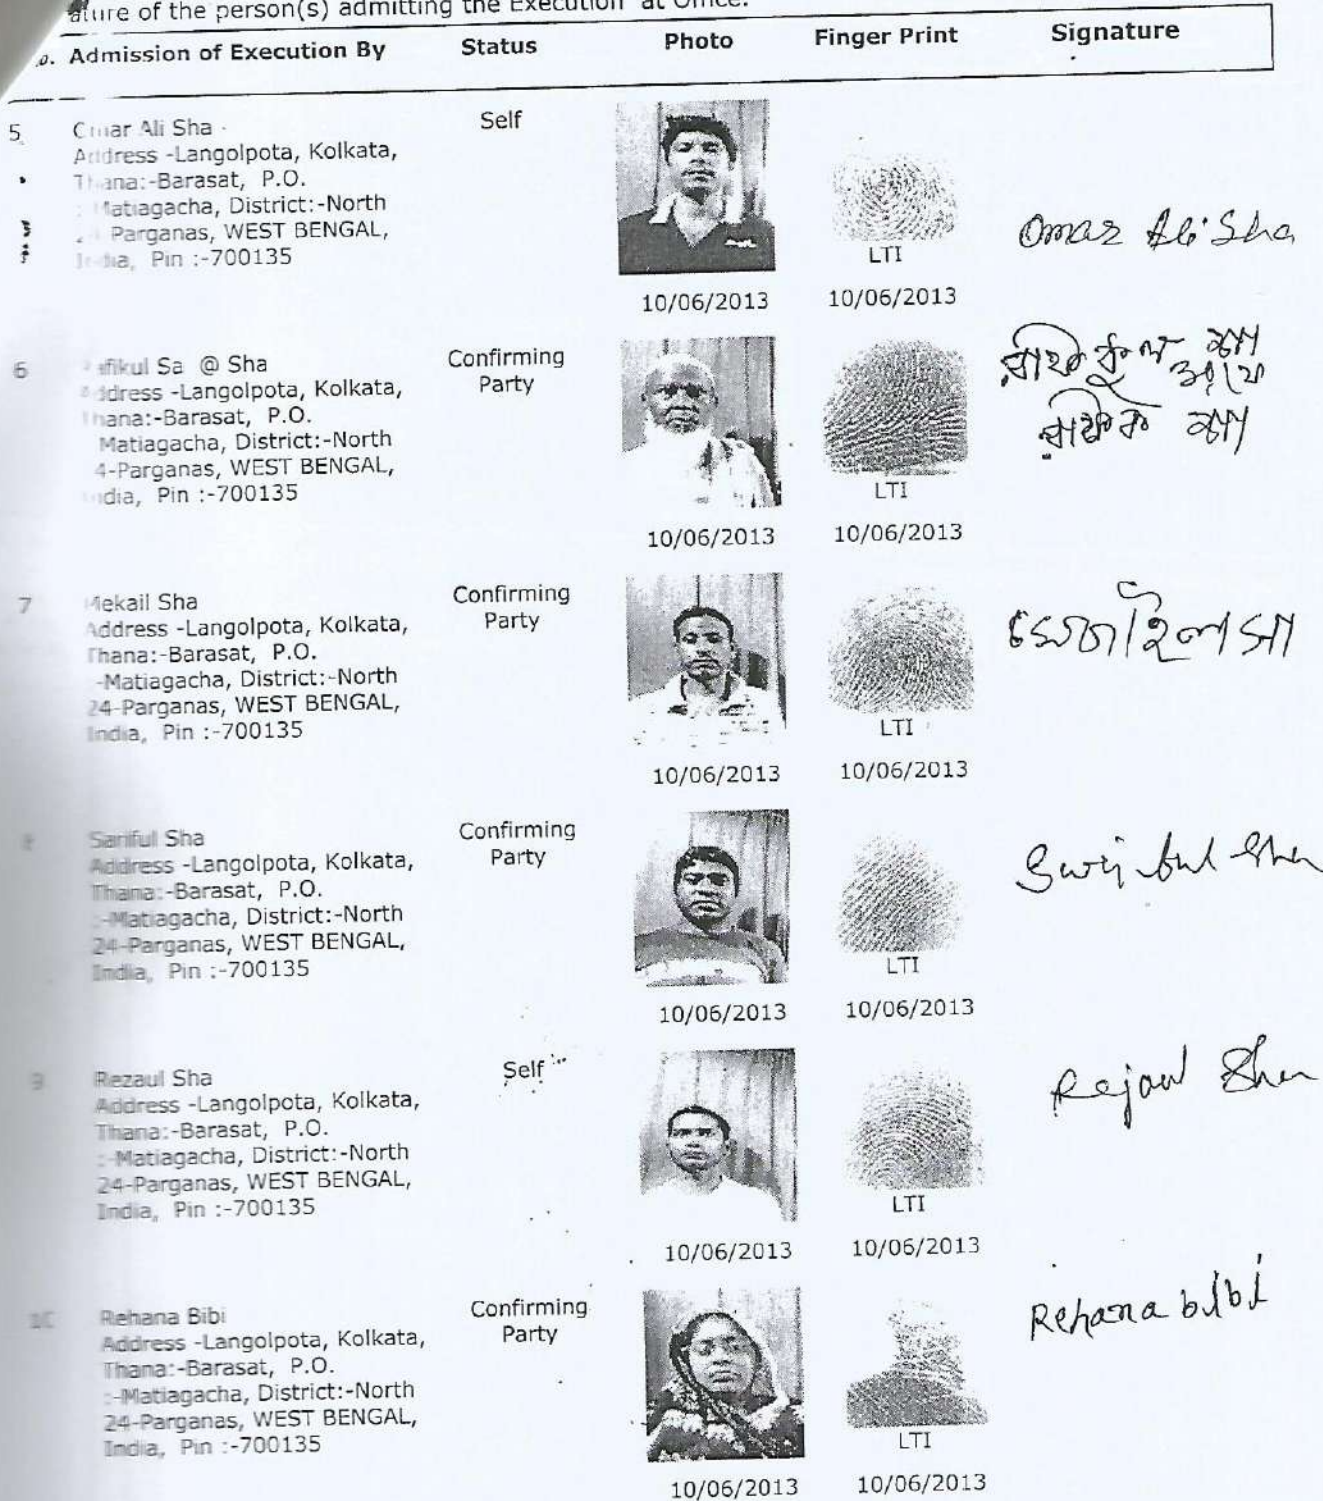 ature of the person(s) admitting the Execution at Office.
o. Admission of Execution By Status Photo Finger Print Signature
5 Omar Ali Sha Self
Address -Langolpota, Kolkata,
Thana:-Barasat, P.O.
:-Matiagacha, District:-North
24-Parganas, WEST BENGAL,
India, Pin :-700135
LTI
10/06/2013 10/06/2013
Omar Ali Sha
6 Rafikul Sa @ Sha Confirming
Party
Address -Langolpota, Kolkata,
Thana:-Barasat, P.O.
Matiagacha, District:-North
4-Parganas, WEST BENGAL,
India, Pin :-700135
LTI
10/06/2013 10/06/2013
7 Mekail Sha Confirming
Party
Address -Langolpota, Kolkata,
Thana:-Barasat, P.O.
-Matiagacha, District:-North
24-Parganas, WEST BENGAL,
India, Pin :-700135
LTI
10/06/2013 10/06/2013
8 Sariful Sha Confirming
Party
Address -Langolpota, Kolkata,
Thana:-Barasat, P.O.
:-Matiagacha, District:-North
24-Parganas, WEST BENGAL,
India, Pin :-700135
LTI
10/06/2013 10/06/2013
9 Rezaul Sha Self
Address -Langolpota, Kolkata,
Thana:-Barasat, P.O.
:-Matiagacha, District:-North
24-Parganas, WEST BENGAL,
India, Pin :-700135
LTI
10/06/2013 10/06/2013
Rejaul Sha
10 Rehana Bibi Confirming
Party
Address -Langolpota, Kolkata,
Thana:-Barasat, P.O.
:-Matiagacha, District:-North
24-Parganas, WEST BENGAL,
India, Pin :-700135
LTI
10/06/2013 10/06/2013
Rehana bibi